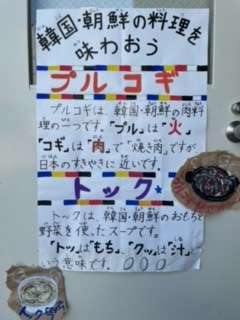 韓国・朝鮮の料理を
味わおう
プルコギ
プルコギは、韓国・朝鮮の肉料
理の一つです。「プル」は「火」
「コギ」は「肉」で「焼き肉」ですが
日本のすきやきに近いです。
トック
トックは、韓国・朝鮮のおもちと
野菜を使ったスープです。
「トッ」は「もち」、「クッ」は「汁」と
いう意味です。